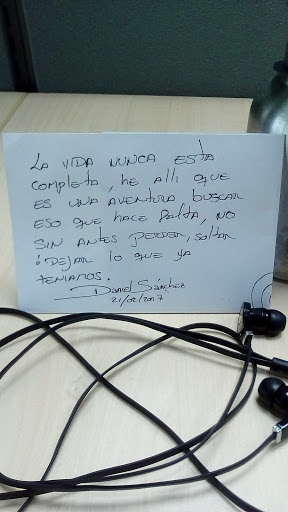 La vida nunca esta
completa, he alli que
es una aventura buscar
eso que hace falta, no
sin antes perder, soltar
ó dejar lo que ya
teniamos.
Daniel Sánchez
21/02/2017